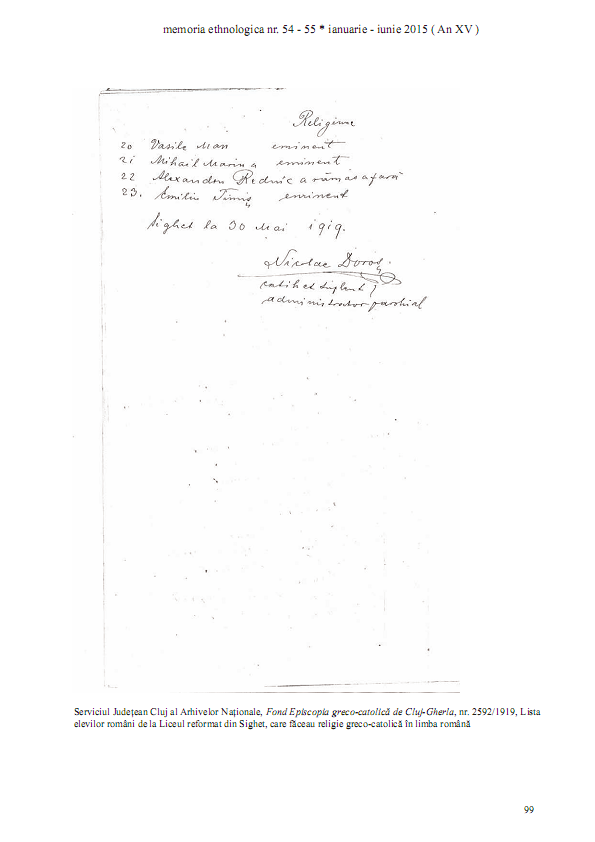 memoria ethnologica nr. 54 - 55 * ianuarie - iunie 2015 ( An XV )
Religiune
20 Vasile Man eminent
21 Mihail Marina eminent
22 Alexandru Rednic a rămas afară
23. Emiliu Timiș eminent
Sighet la 30 Mai 1919.
Nicolae Doroș.
catihet supl
administrator parohial
Serviciul Județean Cluj al Arhivelor Naționale, Fond Episcopia greco-catolică de Cluj-Gherla, nr. 2592/1919, Lista
elevilor români de la Liceul reformat din Sighet, care făceau religie greco-catolică în limba română
99